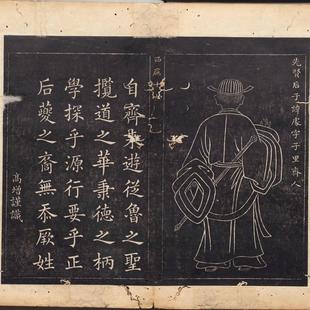 先賢后子諱處字子里齊人
西廡
自齊來遊從魯之聖
攬道之華秉德之柄
學探乎源行要乎正
后夔之裔無忝厥姓
高增謹識